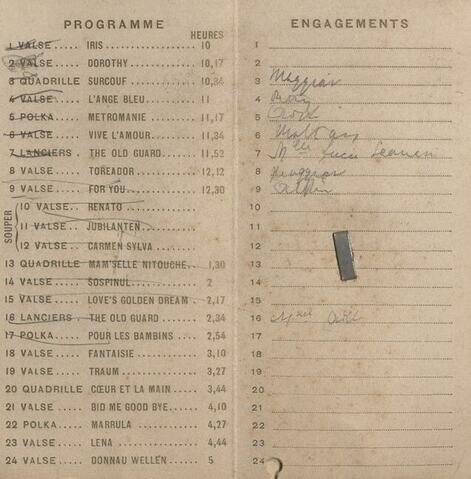 PROGRAMME
HEURES
1 VALSE..... IRIS................ 10
2 VALSE..... DOROTHY........... 10,17
3 QUADRILLE SURCOUF........... 10,34
4 VALSE..... L'ANGE BLEU........ 11
5 POLKA..... METROMANIE....... 11,17
6 VALSE..... VIVE L'AMOUR...... 11,34
7 LANCIERS . THE OLD GUARD..... 11,52
8 VALSE..... TOREADOR......... 12,12
9 VALSE..... FOR YOU........... 12,30
SOUPER
10 VALSE.. RENATO............
11 VALSE.. JUBILANTEN........
12 VALSE.. CARMEN SYLVA......
13 QUADRILLE MAM'SELLE NITOUCHE.. 1,30
14 VALSE..... SOSPINUL........... 2
15 VALSE..... LOVE'S GOLDEN DREAM. 2,17
16 LANCIERS . THE OLD GUARD...... 2,34
17 POLKA..... POUR LES BAMBINS.... 2,54
18 VALSE..... FANTAISIE.......... 3,10
19 VALSE..... TRAUM............. 3,27
20 QUADRILLE CŒUR ET LA MAIN.... 3,44
21 VALSE..... BID ME GOOD BYE.... 4,10
22 POLKA..... MARRULA........... 4,27
23 VALSE..... LENA.............. 4,44
24 VALSE..... DONNAU WELLEN..... 5
ENGAGEMENTS
1
2
3
4
5
6
7 Mlle
8
9
10
11
12
13
14
15
16
17
18
19
20
21
22
23
24